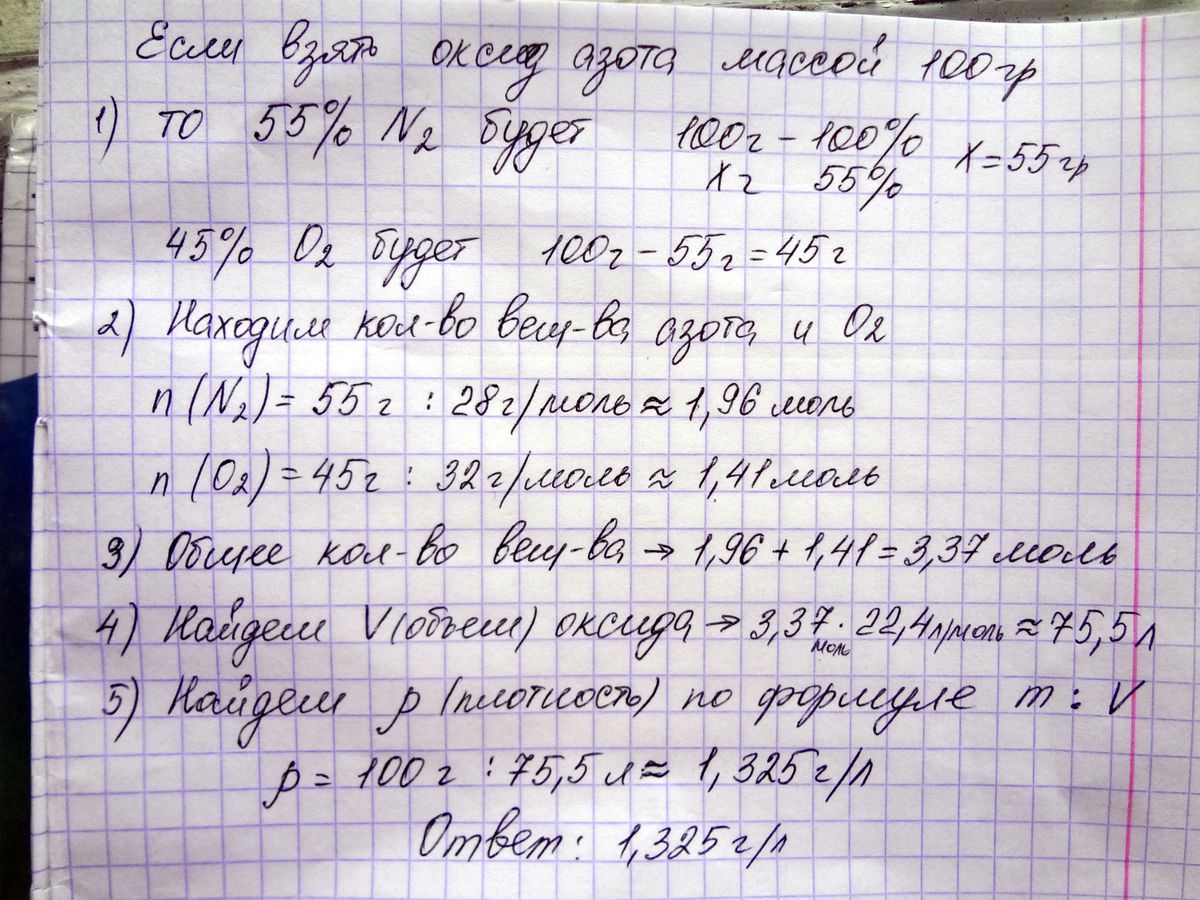 Если взять оксид азота массой 100гр
1) то 55% N2 будет 100г - 100% x = 55гр
xг 55%
45% O2 будет 100г - 55г = 45г
2) Находим кол-во вещ-ва азота и O2
n (N2) = 55г : 28г/моль ≈ 1,96 моль
n (O2) = 45г : 32г/моль ≈ 1,41 моль
3) Общее кол-во вещ-ва → 1,96 + 1,41 = 3,37 моль
4) Найдем V(объем) оксида → 3,37 моль · 22,4л/моль ≈ 75,5 л
5) Найдем ρ (плотность) по формуле m : V
ρ = 100г : 75,5 л ≈ 1,325г/л
Ответ: 1,325г/л